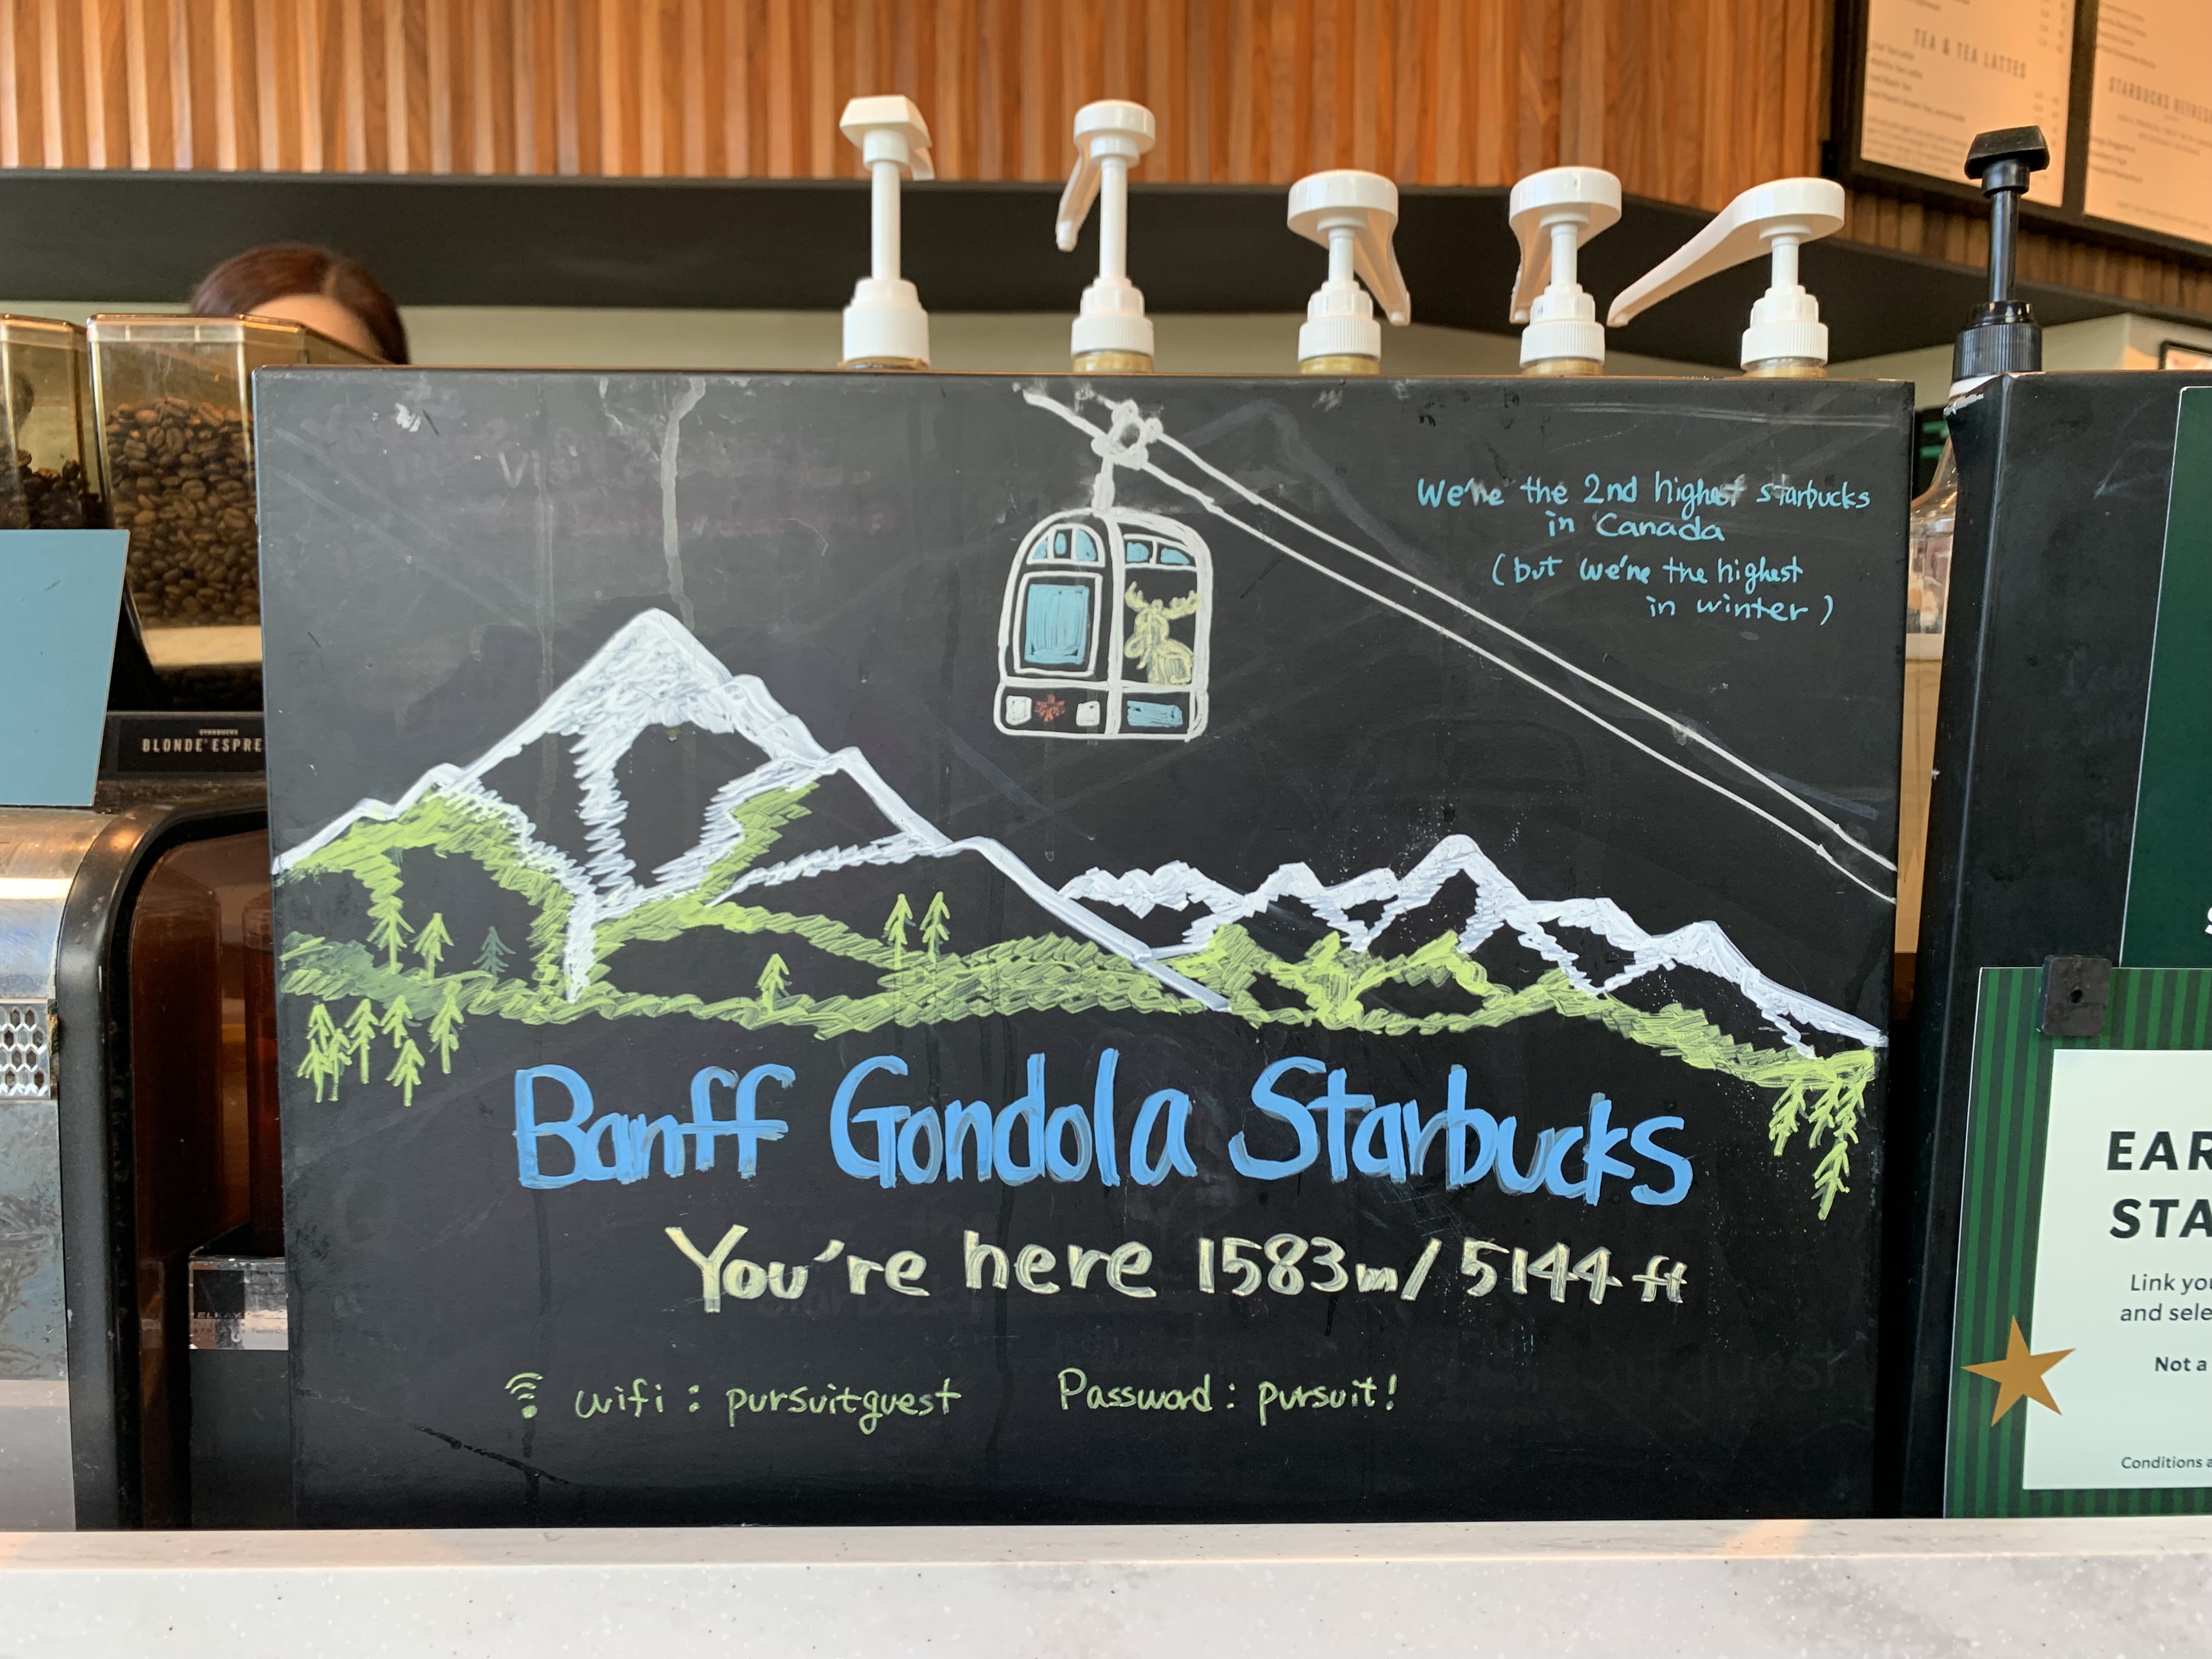 TEA & TEA LATTES
We're the 2nd highest starbucks
in Canada
(but we're the highest
in winter)
STARBUCKS
BLONDE ESPRE
Banff Gondola Starbucks
You're here 1583m/ 5144 ft
wifi : pursuitguest Password : pursuit!
EAR
STA
Link you
and sele
Not a
Conditions a